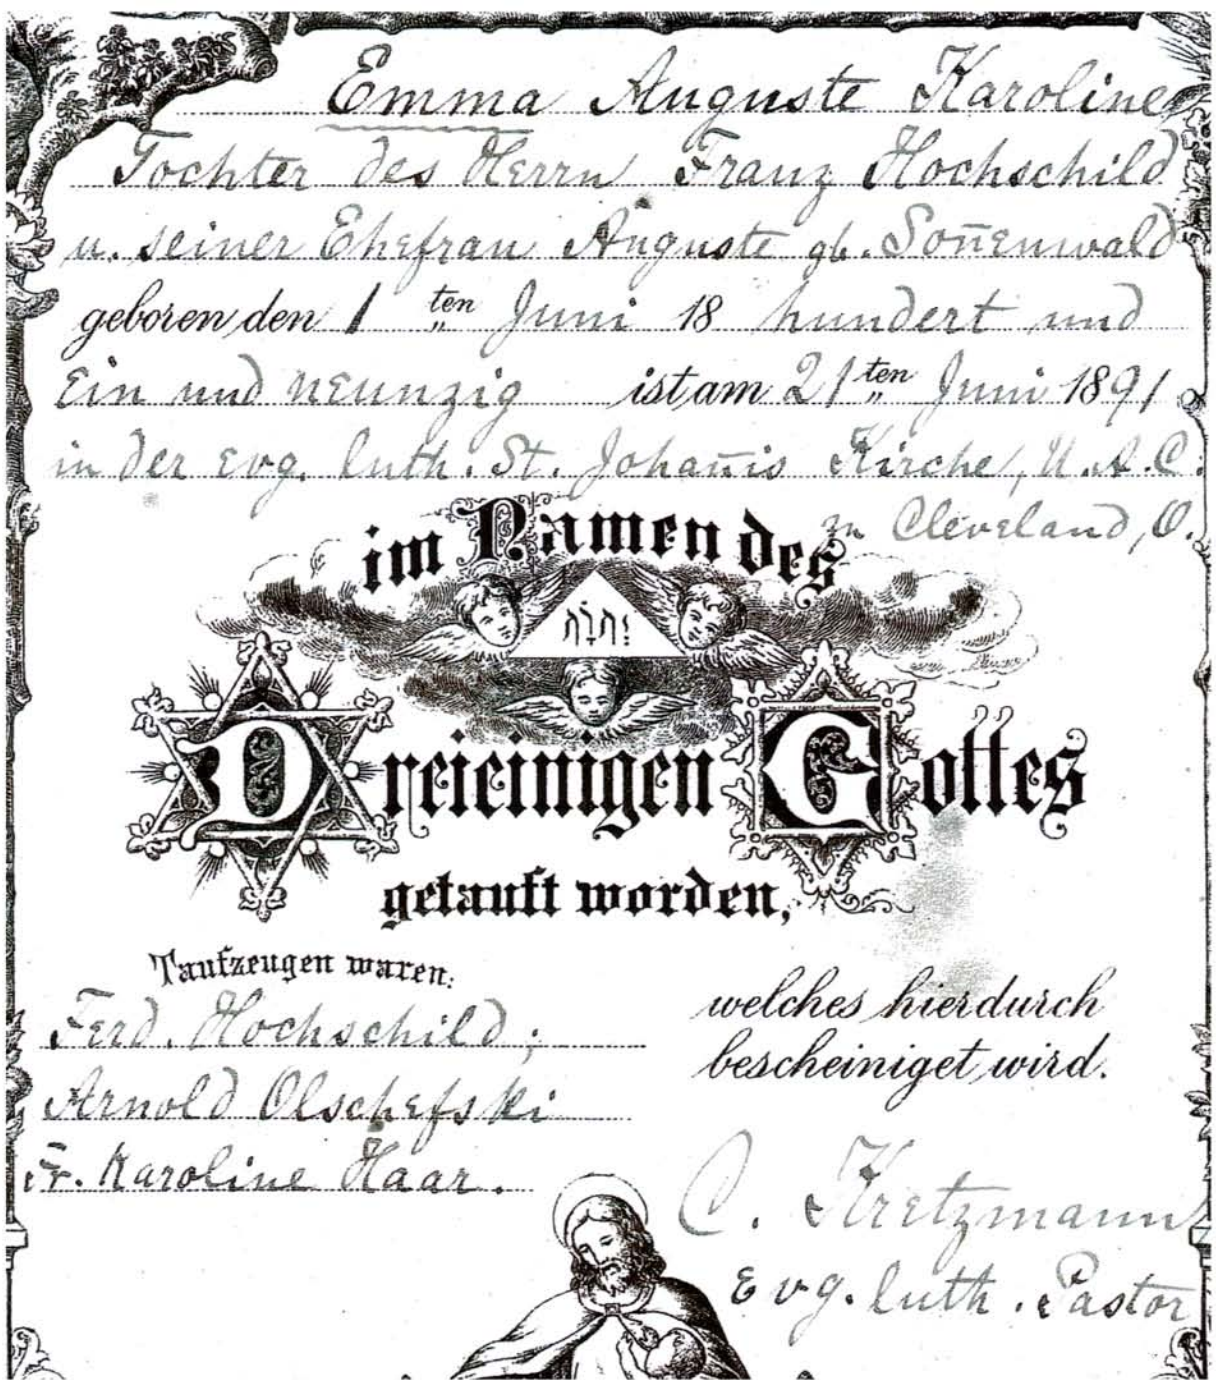 Emma Auguste Karoline
Tochter des Herrn Franz Hochschild
u. seiner Ehefrau Auguste gb. Soñenwald
geboren den 1 ten Juni 18 hundert und
Ein und neunzig ist am 21 ten Juni 1891
in der evg. luth. St. Johañis Kirche, U.A.C.
zu Cleveland, O.
im Namen des
יהוה
Dreieinigen Gottes
getauft worden,
Taufzeugen waren:
Ferd. Hochschild;
Arnold Olschefski
Fr. Karoline Haar.
welches hierdurch
bescheiniget wird.
C. Kretzmann
Evg. luth. Pastor